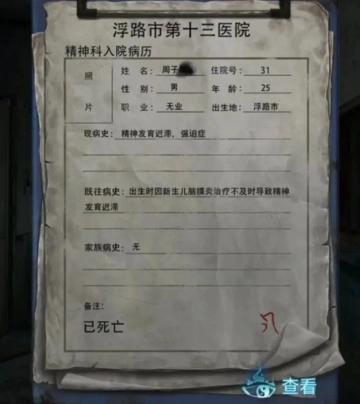 浮路市第十三医院
精神科入院病历
照片
姓 名: 周子 住院号: 31
性 别: 男 年 龄: 25
职 业: 无业 出生地: 浮路市
现病史: 精神发育迟滞, 强迫症
既往病史: 出生时因新生儿脑膜炎治疗不及时导致精神
发育迟滞
家族病史: 无
备注:
已死亡
查看